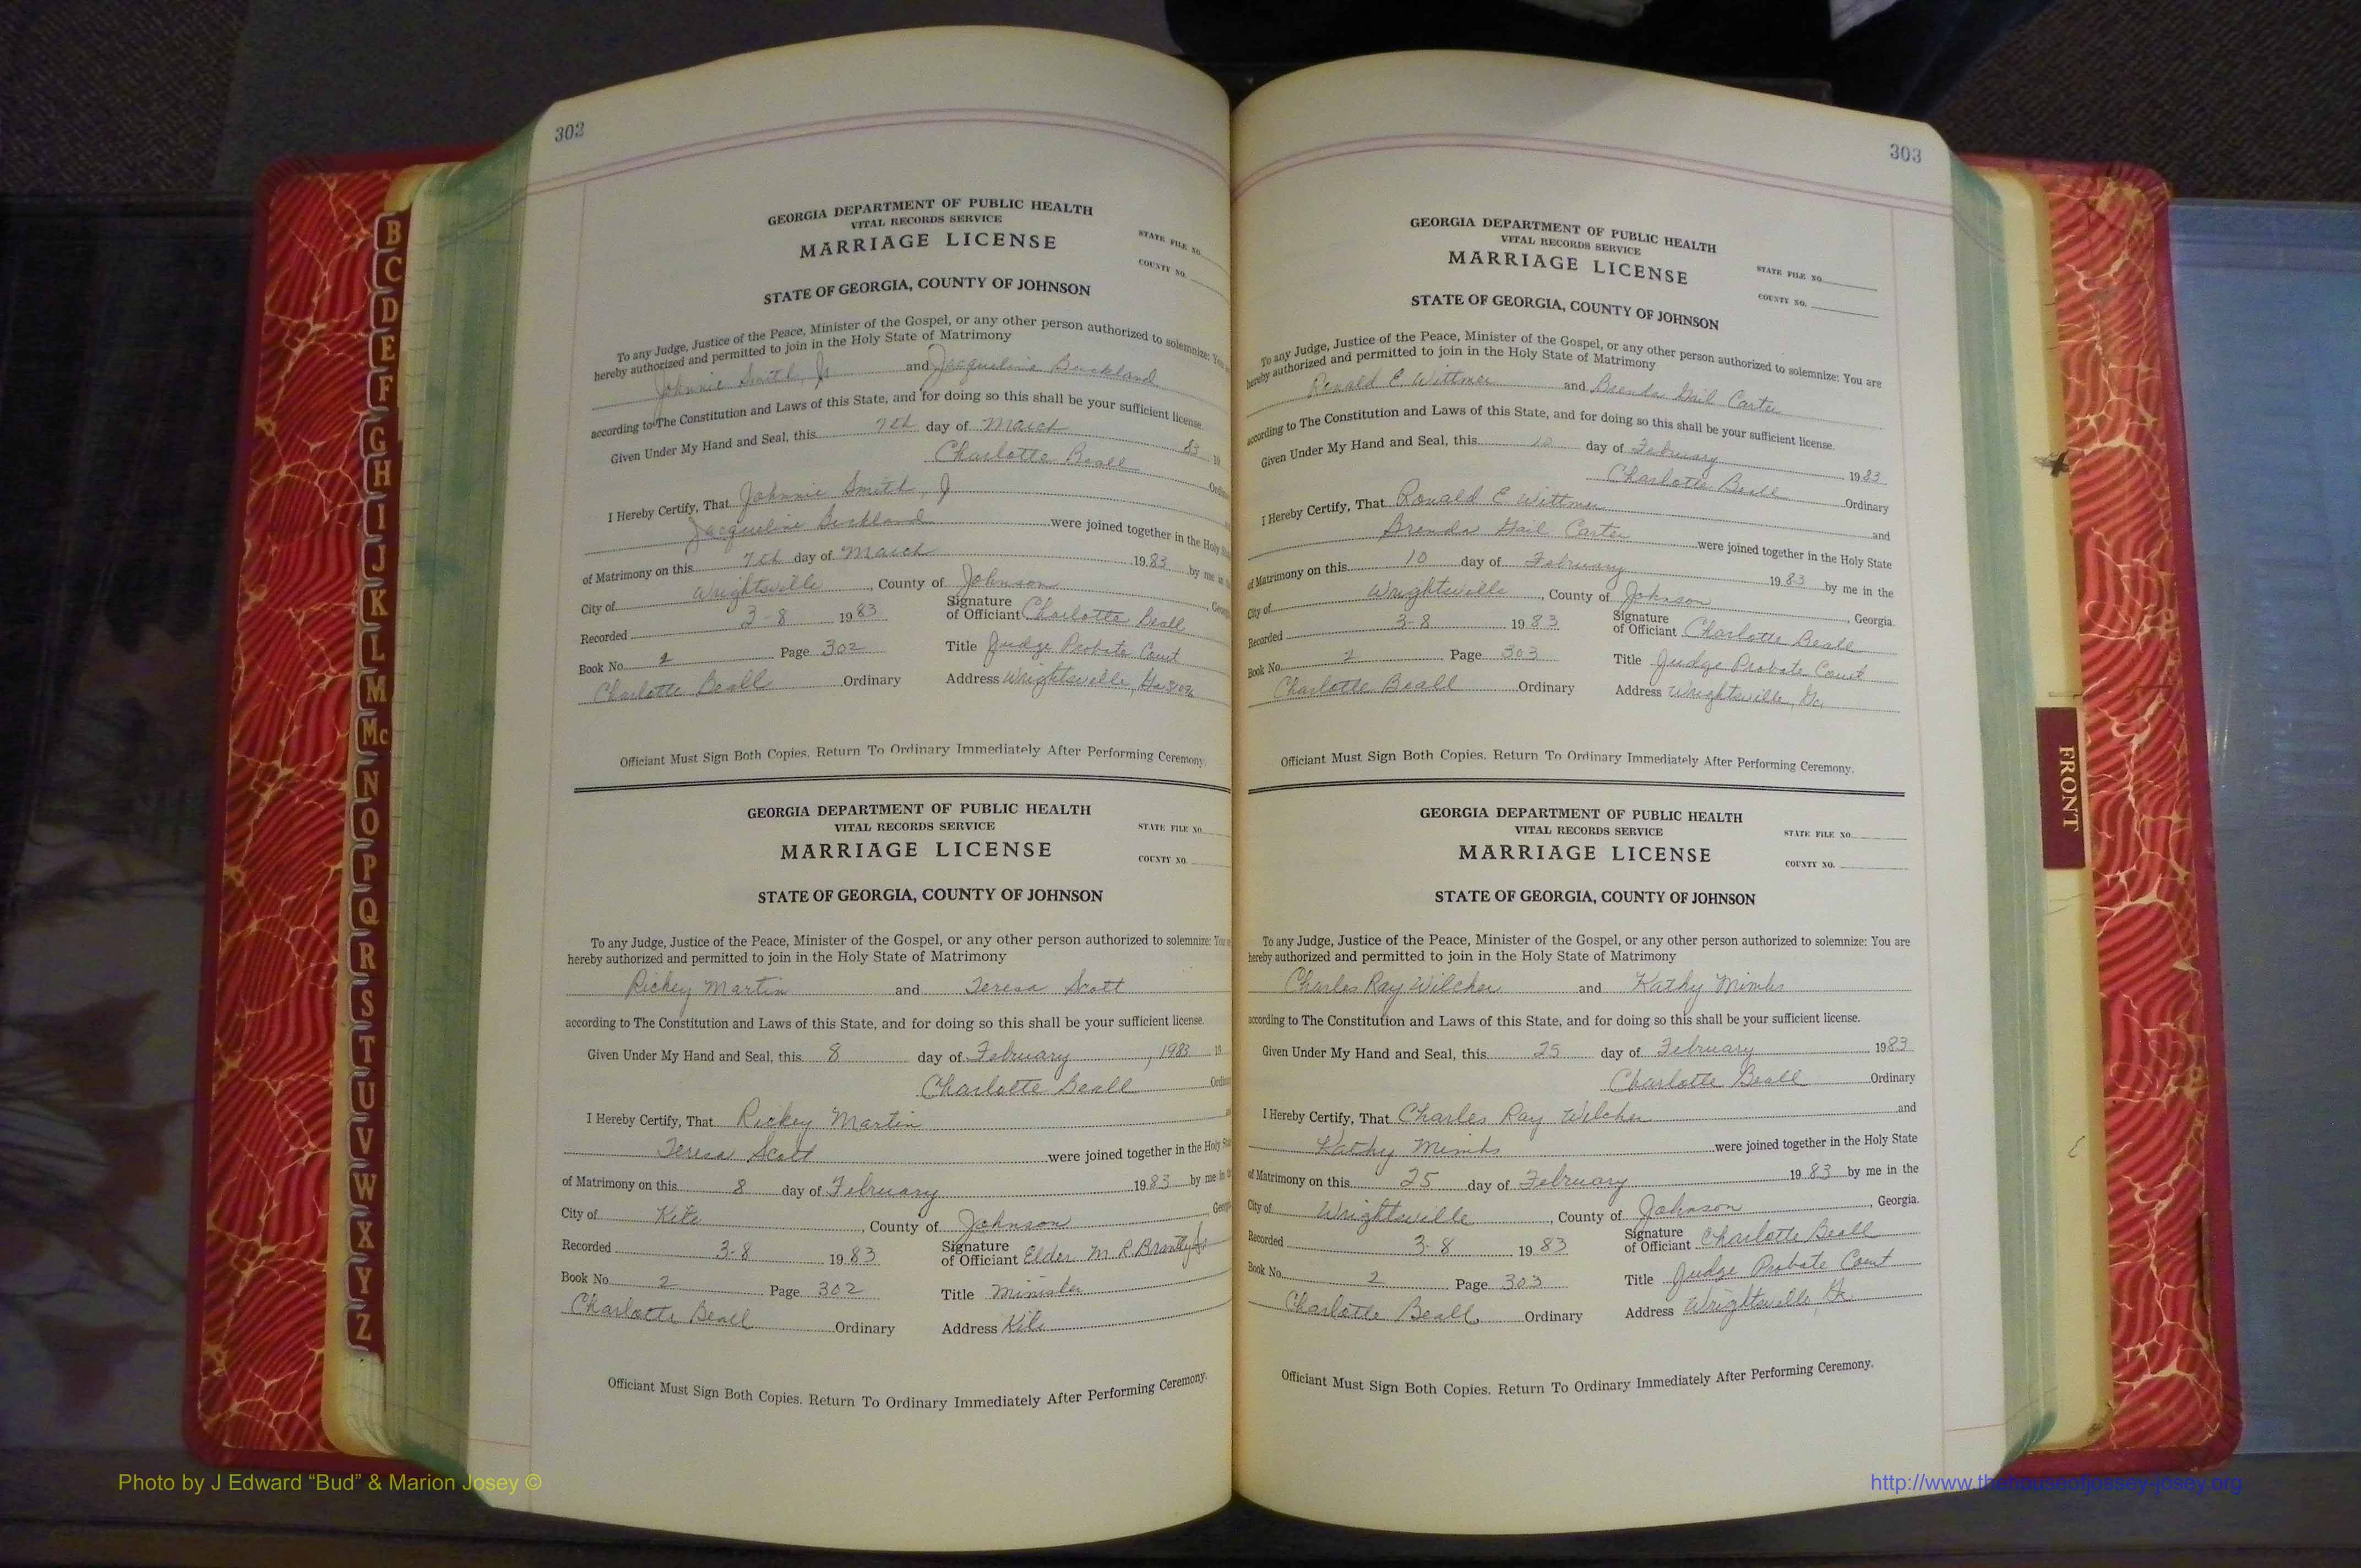 302
GEORGIA DEPARTMENT OF PUBLIC HEALTH
VITAL RECORDS SERVICE
MARRIAGE LICENSE
STATE FILE NO.
COUNTY NO.
STATE OF GEORGIA, COUNTY OF JOHNSON
To any Judge, Justice of the Peace, Minister of the Gospel, or any other person authorized to solemnize: You
hereby authorized and permitted to join in the Holy State of Matrimony
Johnnie Smith, Jr and Jacqueline Buckland
according to The Constitution and Laws of this State, and for doing so this shall be your sufficient license.
Given Under My Hand and Seal, this 7th day of March 83 19
Charlotte Beall
I Hereby Certify, That Johnnie Smith, J
Jacqueline Buckland were joined together in the Holy
of Matrimony on this 7th day of March 1983 by me in
City of Wrightsville, County of Johnson
Recorded 3-8 1983 Signature of Officiant Charlotte Beall
Book No. 2 Page 302 Title Judge Probate Court
Charlotte Beall Ordinary Address Wrightsville, Ga 31096
Officiant Must Sign Both Copies. Return To Ordinary Immediately After Performing Ceremony.
GEORGIA DEPARTMENT OF PUBLIC HEALTH
VITAL RECORDS SERVICE
MARRIAGE LICENSE
STATE FILE NO.
COUNTY NO.
STATE OF GEORGIA, COUNTY OF JOHNSON
To any Judge, Justice of the Peace, Minister of the Gospel, or any other person authorized to solemnize: You
hereby authorized and permitted to join in the Holy State of Matrimony
Rickey Martin and Teresa Scott
according to The Constitution and Laws of this State, and for doing so this shall be your sufficient license.
Given Under My Hand and Seal, this 8 day of February, 1983 19
Charlotte Beall
I Hereby Certify, That Rickey Martin
Teresa Scott were joined together in the Holy
of Matrimony on this 8 day of February 1983 by me in
City of Kite, County of Johnson
Recorded 3-8 1983 Signature of Officiant Elder M. R. Brantley Jr
Book No. 2 Page 302 Title Minister
Charlotte Beall Ordinary Address Kite
Officiant Must Sign Both Copies. Return To Ordinary Immediately After Performing Ceremony.
303
GEORGIA DEPARTMENT OF PUBLIC HEALTH
VITAL RECORDS SERVICE
MARRIAGE LICENSE
STATE FILE NO.
COUNTY NO.
STATE OF GEORGIA, COUNTY OF JOHNSON
To any Judge, Justice of the Peace, Minister of the Gospel, or any other person authorized to solemnize: You are
hereby authorized and permitted to join in the Holy State of Matrimony
Ronald E Wittmer and Brenda Gail Carter
according to The Constitution and Laws of this State, and for doing so this shall be your sufficient license.
Given Under My Hand and Seal, this 10 day of February 1983
Charlotte Beall Ordinary
I Hereby Certify, That Ronald E Wittmer and
Brenda Gail Carter were joined together in the Holy State
of Matrimony on this 10 day of February 1983 by me in the
City of Wrightsville, County of Johnson, Georgia.
Recorded 3-8 1983 Signature of Officiant Charlotte Beall
Book No. 2 Page 303 Title Judge Probate Court
Charlotte Beall Ordinary Address Wrightsville, Ga.
Officiant Must Sign Both Copies. Return To Ordinary Immediately After Performing Ceremony.
GEORGIA DEPARTMENT OF PUBLIC HEALTH
VITAL RECORDS SERVICE
MARRIAGE LICENSE
STATE FILE NO.
COUNTY NO.
STATE OF GEORGIA, COUNTY OF JOHNSON
To any Judge, Justice of the Peace, Minister of the Gospel, or any other person authorized to solemnize: You are
hereby authorized and permitted to join in the Holy State of Matrimony
Charles Ray Wilcher and Kathy Mimbs
according to The Constitution and Laws of this State, and for doing so this shall be your sufficient license.
Given Under My Hand and Seal, this 25 day of February 1983
Charlotte Beall Ordinary
I Hereby Certify, That Charles Ray Wilcher and
Kathy Mimbs were joined together in the Holy State
of Matrimony on this 25 day of February 1983 by me in the
City of Wrightsville, County of Johnson, Georgia.
Recorded 3-8 1983 Signature of Officiant Charlotte Beall
Book No. 2 Page 303 Title Judge Probate Court
Charlotte Beall Ordinary Address Wrightsville, Ga.
Officiant Must Sign Both Copies. Return To Ordinary Immediately After Performing Ceremony.
B
C
D
E
F
G
H
I
J
K
L
M
Mc
N
O
P
Q
R
S
T
U
V
W
X
Y
Z
FRONT
Photo by J Edward “Bud” & Marion Josey ©
http://www.thehouseofjossey-josey.org